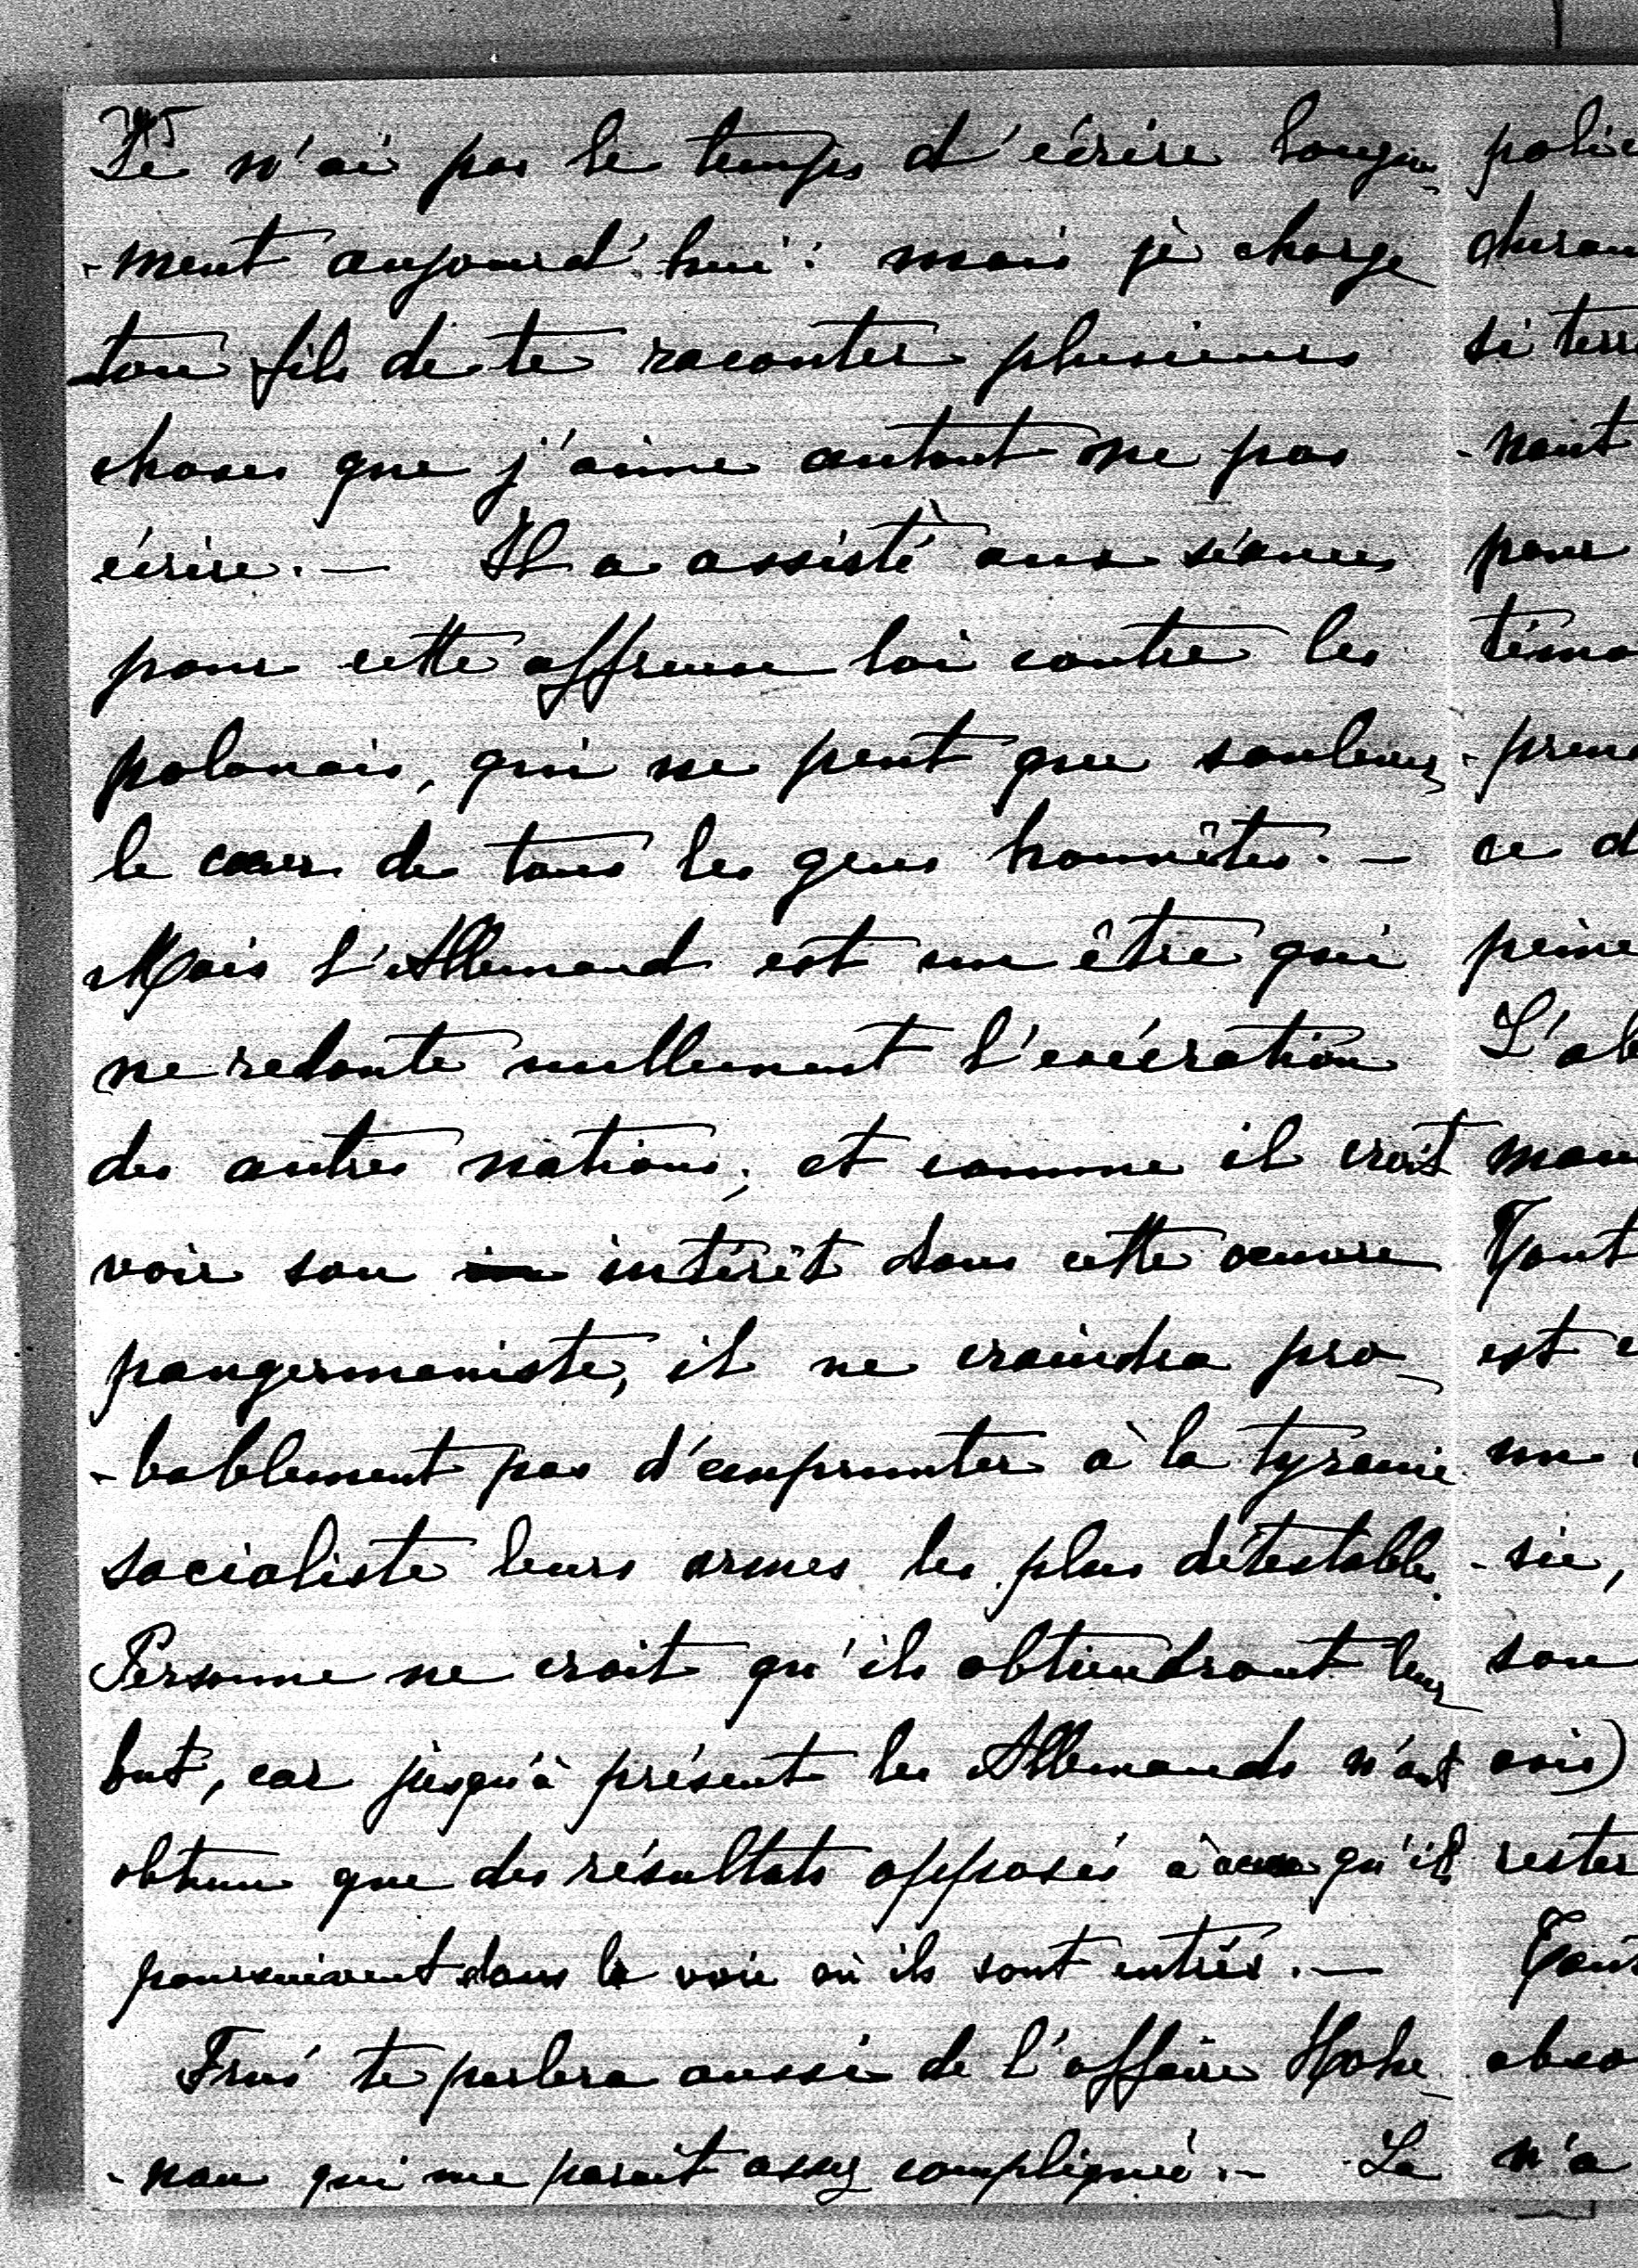 Je n'ai pas le temps d'écrire longue-
-ment aujourd'hui: mais je charge
ton fils de te raconter plusieurs
choses que j'aime autant ne pas
écrire. — Il a assisté aux séances
pour cette affreuse loi contre les
polonais, qui ne peut que soulever
le cœur de tous les gens honnêtes. —
Mais l'Allemand est un être qui
ne redoute nullement l'exécration
des autres nations; et comme il croit
voir son intérêt dans cette œuvre
pangermaniste, il ne craindra pro-
-bablement pas d'emprunter à la tyranie
socialiste leurs armes les plus détestables.
Personne ne croit qu'ils obtiendront leur
but, car jusqu'à présent les Allemands n'ont
obtenu que des résultats opposés à ceux qu'ils
poursuivent dans la voie où ils sont entrés. —
te parlera aussi de l'affaire Hohe-
-nau qui me parait assez compliquée. — La
polic
duran
si terri
-nant
pour
témo
-prend
ce d
peine
L'al
mau
Tout
est c
un
-sie,
son
avis)
rester
Tout
abso
n'a